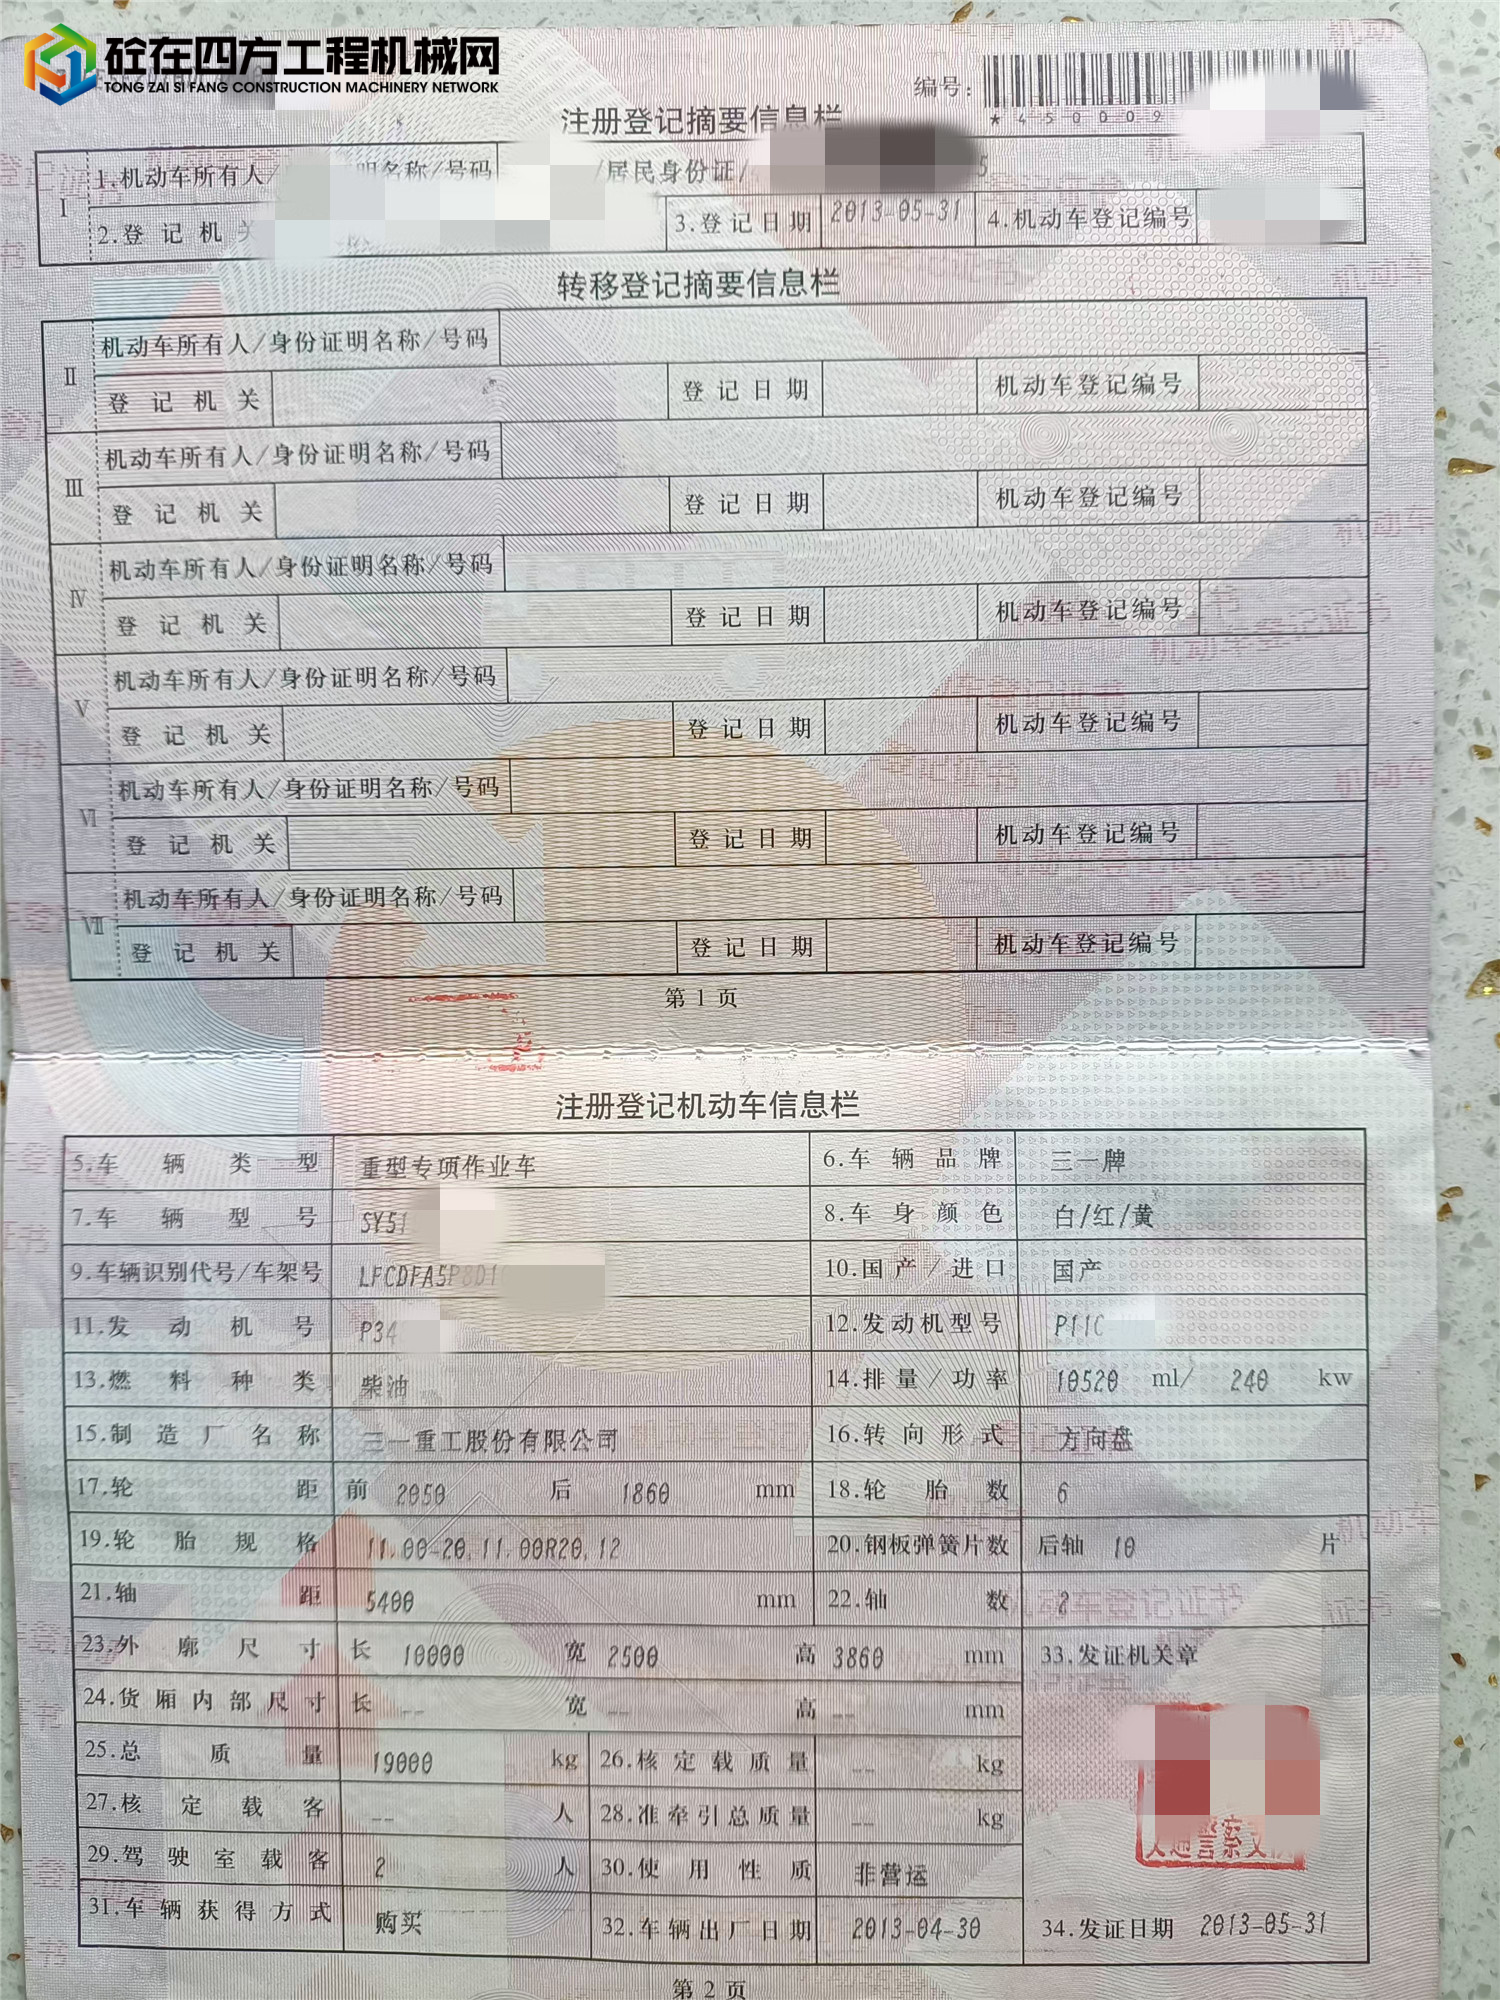 砼在四方工程机械网
TONG ZAI SI FANG CONSTRUCTION MACHINERY NETWORK
编号:
*450009
注册登记摘要信息栏
I
1.机动车所有人/ 明名称/号码 /居民身份证/ 5
2.登记机关 3.登记日期 2013-05-31 4.机动车登记编号
转移登记摘要信息栏
II 机动车所有人/身份证明名称/号码
登记机关 登记日期 机动车登记编号
III 机动车所有人/身份证明名称/号码
登记机关 登记日期 机动车登记编号
IV 机动车所有人/身份证明名称/号码
登记机关 登记日期 机动车登记编号
V 机动车所有人/身份证明名称/号码
登记机关 登记日期 机动车登记编号
VI 机动车所有人/身份证明名称/号码
登记机关 登记日期 机动车登记编号
VII 机动车所有人/身份证明名称/号码
登记机关 登记日期 机动车登记编号
第 1 页
注册登记机动车信息栏
5.车辆类型 重型专项作业车 6.车辆品牌 三一牌
7.车辆型号 SY51 8.车身颜色 白/红/黄
9.车辆识别代号/车架号 LFCDFA5P8D1 10.国产/进口 国产
11.发动机号 P34 12.发动机型号 P11C
13.燃料种类 柴油 14.排量/功率 10520 ml/ 240 kw
15.制造厂名称 三一重工股份有限公司 16.转向形式 方向盘
17.轮距 前 2050 后 1860 mm 18.轮胎数 6
19.轮胎规格 11.00-20,11.00R20,12 20.钢板弹簧片数 后轴 10 片
21.轴距 5400 mm 22.轴数 2
23.外廓尺寸 长 10000 宽 2500 高 3860 mm 33.发证机关章
24.货厢内部尺寸 长 -- 宽 -- 高 -- mm
25.总质量 19000 kg 26.核定载质量 -- kg
27.核定载客 -- 人 28.准牵引总质量 -- kg
29.驾驶室载客 2 人 30.使用性质 非营运
31.车辆获得方式 购买 32.车辆出厂日期 2013-04-30 34.发证日期 2013-05-31
第 2 页